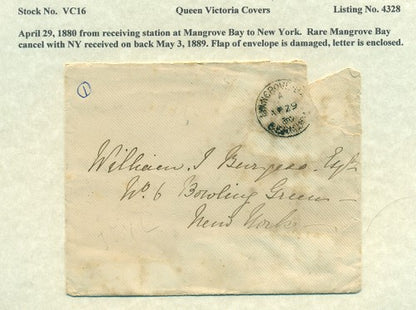 Stock No. VC16 Queen Victoria Covers Listing No. 4328
April 29, 1880 from receiving station at Mangrove Bay to New York. Rare Mangrove Bay
cancel with NY received on back May 3, 1889. Flap of envelope is damaged, letter is enclosed.
1
MANGROVE BAY
A
AP 29
80
BERMUDA
William J Burgess Esqr
No. 6 Bowling Green
New York